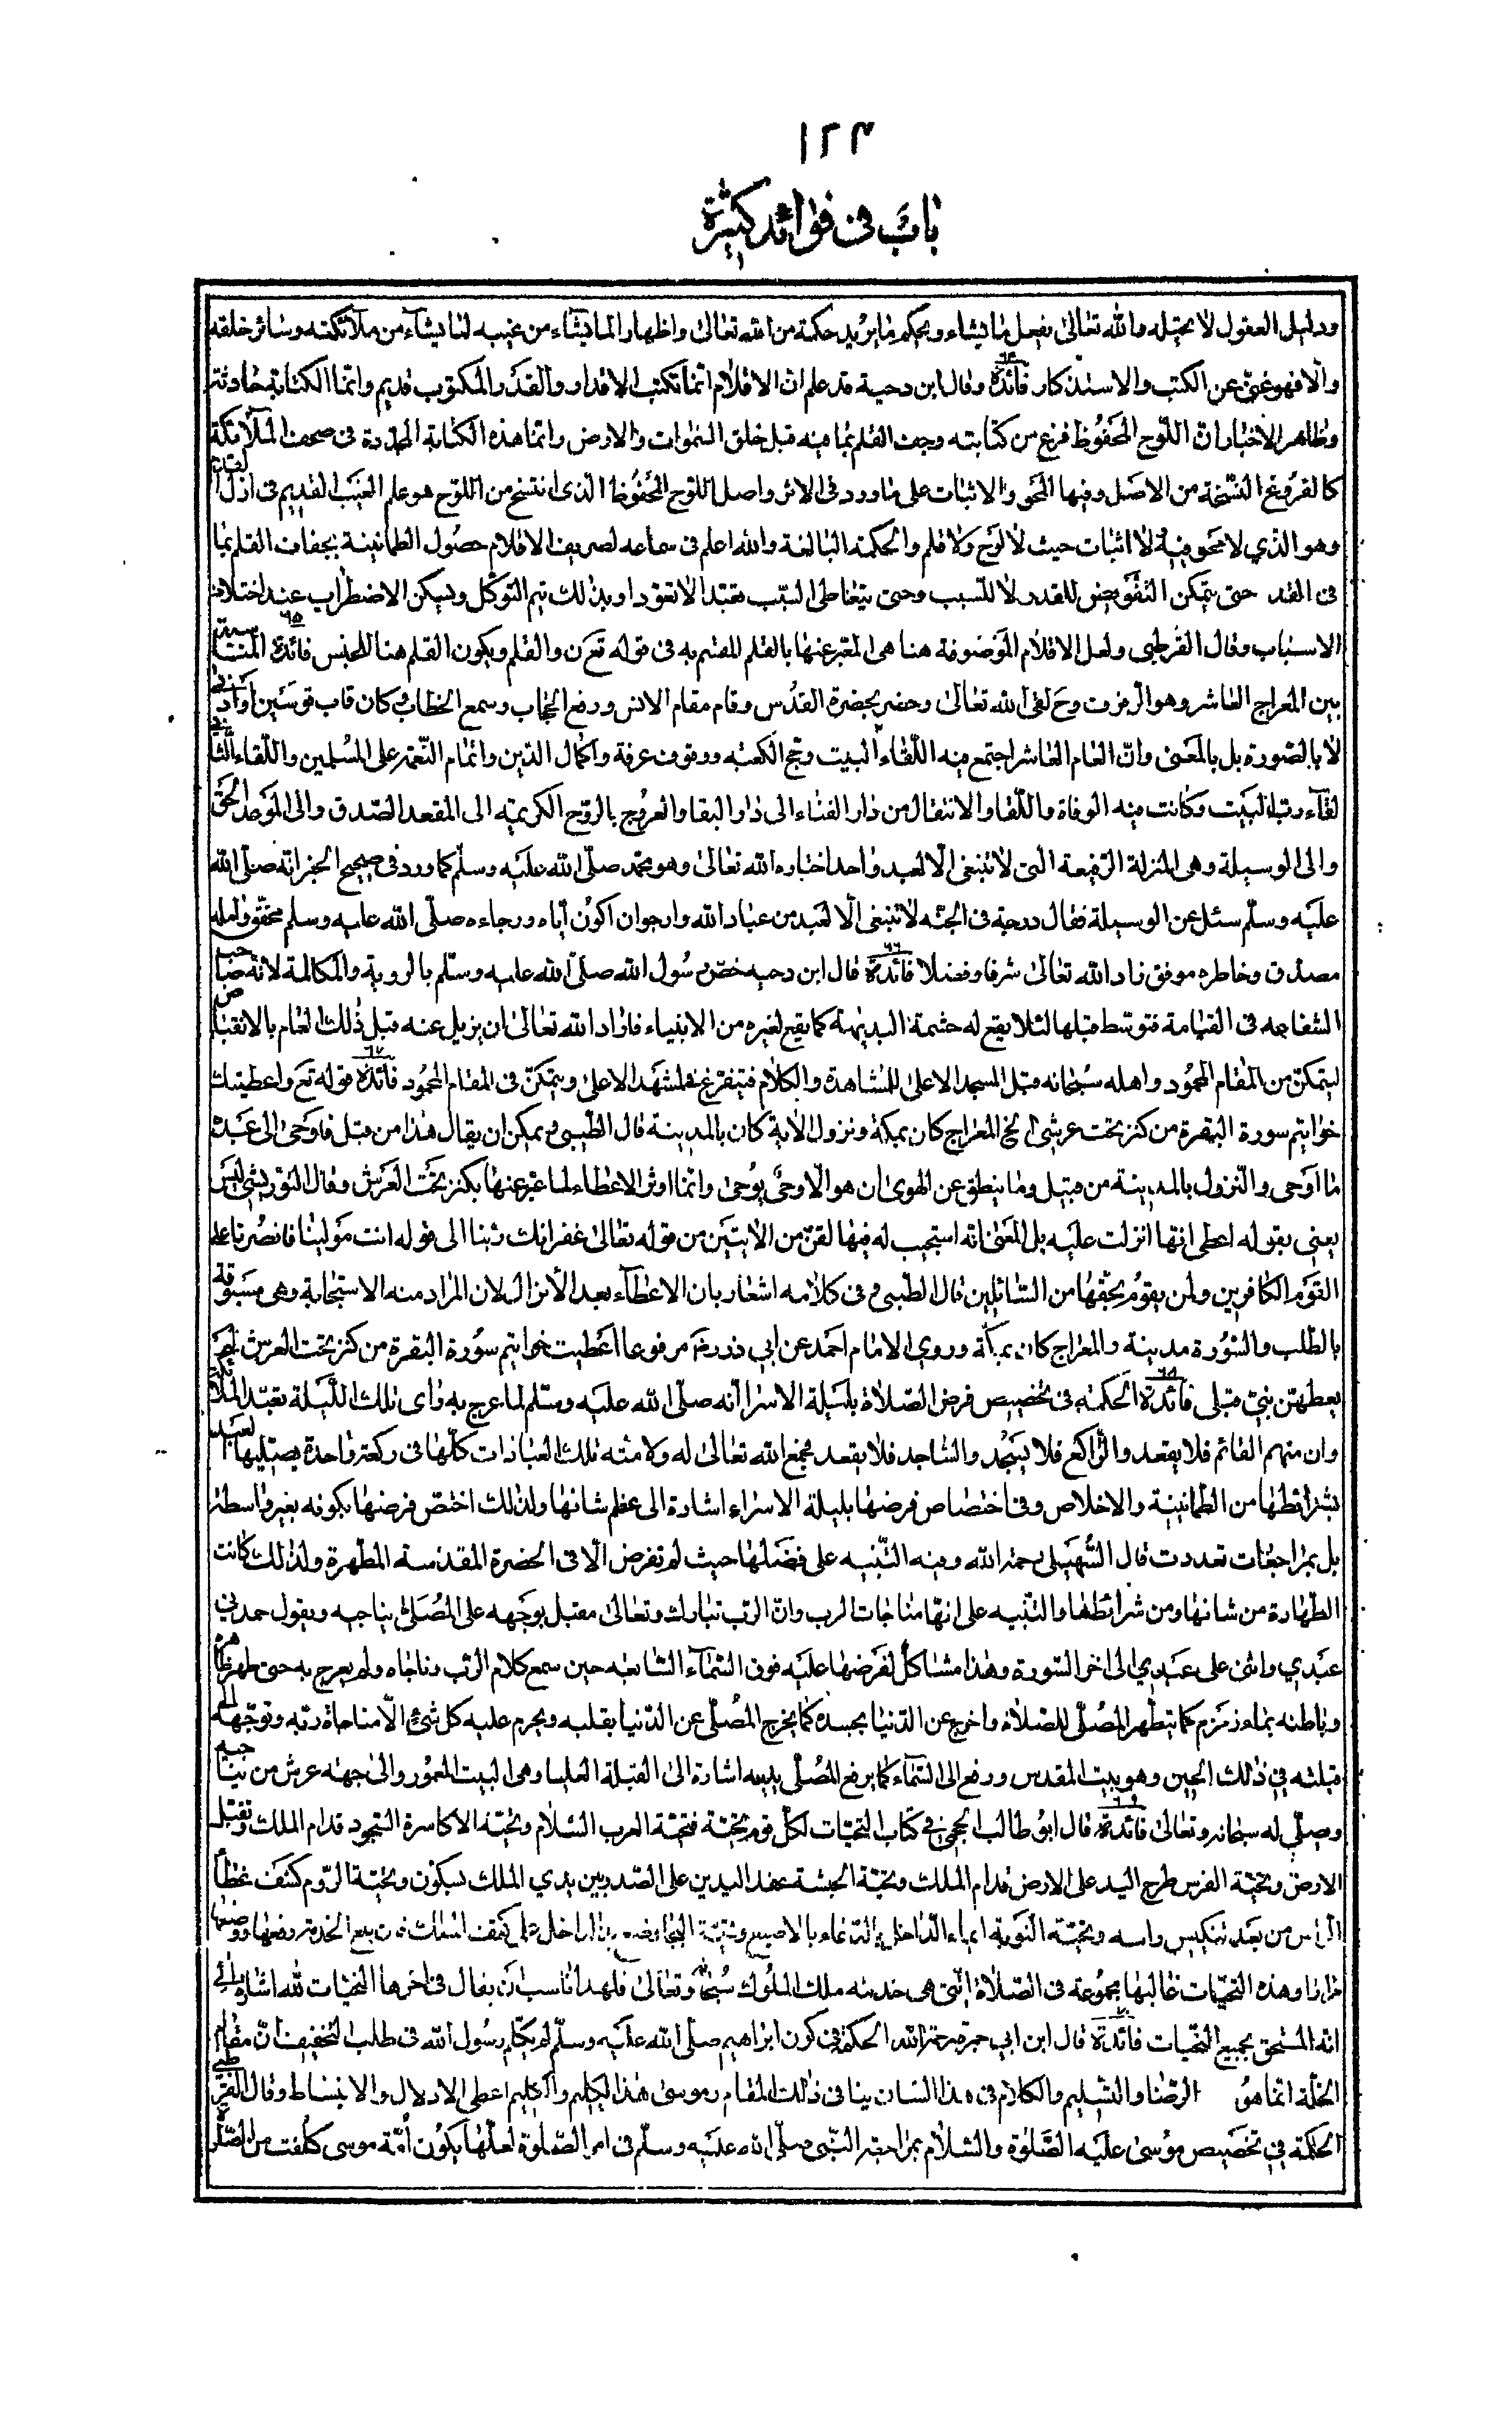 ١٢٣
باب في فوائد كثيرة
ودليل العقول لا يحيله والله تعالى يفعل ما يشاء ويحكم ما يريد حكمة من الله تعالى واظهارا لما يشاء من غيبه لما يشاء من ملآئكته وسائر خلقه
والا فهو غنيّ عن الكتب والاستذكار فائدة ٦٤ وقال ابن دحية قد علم ان الاقلام انما تكتب الاقدار والقدر المكتوب قديم وانما الكتابة حادثة
وظاهر الاخبار ان اللوح المحفوظ فرغ من كتابته وجف القلم بما فيه قبل خلق السموات والارض وانما هذه الكتابة المجددة في صحف الملآئكة
كالفروع المنتسخة من الاصل وفيها المحو والاثبات على ما ورد في الاثر واصل اللوح المحفوظ الذي انتسخ من اللوح هو علم الغيب القديم في ازل القدم
وهو الذي لا محو فيه ولا اثبات حيث لا لوح ولا قلم والحكمة البالغة والله اعلم في سماعه لصريف الاقلام حصول الطمانينة بجفاف القلم بما
في القدر حتى يتمكن التفويض للقدر لا للسبب وحتى يتعاطى السبب تعبدا لا تعودا وبذلك يتم التوكل ويسكن الاضطراب عند اختلاف
الاسباب وقال القرطبي ولعل الاقلام الموصوفة هنا هي المعبر عنها بالقلم المقسم به في قوله تع ن والقلم ويكون القلم هنا للجنس فائدة ٦٥ المناسبة
بين المعراج العاشر وهو الرفرف وح لقى الله تعالى وحضر بحضرة القدس وقام مقام الانس ورفع الحجاب وسمع الخطاب وكان قاب قوسين او ادنى
لا بالصورة بل بالمعنى وان العام العاشر اجتمع فيه اللقاء البيت وحج الكعبة ووقوف عرفة واكمال الدين واتمام النعمة على المسلمين واللقاء الثاني
لقاء رب البيت وكانت فيه الوفاة واللقا والانتقال من دار الفناء الى دار البقا والعروج بالروح الكريمة الى المقعد الصدق والى الموعد الحق
والى الوسيلة وهي المنزلة الرفيعة التي لا تنبغي الا لعبد واحد اختاره الله تعالى وهو محمد صلى الله عليه وسلم كما ورد في صحيح الخبر انه صلى الله
عليه وسلم سئل عن الوسيلة فقال درجة في الجنة لا تنبغي الا لعبد من عباد الله وارجو ان اكون اياه ورجاءه صلى الله عليه وسلم محقق وامله
مصدق وخاطره موفق زاد الله تعالى شرفا وفضلا فائدة ٦٦ قال ابن دحية خص رسول الله صلى الله عليه وسلم بالروية والمكالمة لانه صاحب
الشفاعه في القيامة فتوسط قبلها لئلا يقع له حشمة البديهة كما يقع لغيره من الانبياء فاراد الله تعالى ان يزيل عنه قبل ذلك المقام بالانقباض
ليتمكن من المقام المحمود واهله سبحانه قبل المسجد الاعلى للمشاهدة والكلام فيتفرغ في المشهد الاعلى ويتمكن في المقام المحمود فائدة ٦٧ قوله تع واعطيتك
خواتيم سورة البقرة من كنز تحت عرشي الخ المعراج كان بمكة ونزول الاية كان بالمدينة قال الطيبي ويمكن ان يقال هذا من قبل فاوحى الى عبده
ما اوحى والنزول بالمدينة من قبيل وما ينطق عن الهوى ان هو الا وحي يوحى وانما اوثر الاعطاء لما عبر عنها بكنز تحت العرش وقال التوربشتي ليس
يعني بقوله اعطى انها انزلت عليه بل المعنى انه استجيب له فيها لقن من الآيتين من قوله تعالى غفرانك ربنا الى قوله انت مولينا فانصرنا على
القوم الكافرين ولمن يقوم بحقها من السائلين قال الطيبي و في كلامه اشعار بان الاعطاء بعد الانزال لان المراد منه الاستجابة وهي مسبوقة
بالطلب والسورة مدينة والمعراج كان بمكة وروى الامام احمد عن ابي ذر رضه مرفوعا اعطيت خواتيم سورة البقرة من كنز تحت العرش لم
يعطهن نبي قبلى فائدة ٦٨ الحكمة في تخصيص فرض الصلاة بليلة الاسرا انه صلى الله عليه وسلم لما عرج به راى تلك الليلة تعبد الملآئكة
وان منهم القائم فلا يقعد والراكع فلا يسجد والساجد فلا يقعد فجمع الله تعالى له ولامته تلك العبادات كلها في ركعة واحدة يصليها العبد
بشرائطها من الطمانينة والاخلاص وفي اختصاص فرضها بليلة الاسراء اشارة الى عظم شانها ولذلك اختص فرضها بكونه بغير واسطة
بل بمراجعات تعددت قال السهيلي رحمه الله وفيه التنبيه على فضلها حيث لم تفرض الا في الحضرة المقدسة المطهرة ولذلك كانت
الطهارة من شانها ومن شرائطها والتنبيه على انها مناجات الرب وان الرب تبارك وتعالى مقبل بوجهه على المصلى يناجيه ويقول حمدني
عبدي واثنى على عبدي الى اخر السورة وهذا مشاكل لفرضها عليه فوق السماء السابعه حين سمع كلام الرب وناجاه ولم يعرج به حتى طهر ظاهره
وباطنه بماء زمزم كما يتطهر المصلى للصلاة واخرج عن الدنيا بجسده كما يخرج المصلى عن الدنيا بقلبه ويحرم عليه كل شئ الا مناجاة ربه وتوجهه الى
قبلته في ذلك الحين وهو بيت المقدس ورفع الى السماء كما يرفع المصلى يديه اشارة الى القبلة العليا وهي البيت المعمور والى جهة عرش من يناجيه
ويصلي له سبحانه وتعالى فائدة ٦٩ قال ابو طالب الجمحي في كتاب التحيات لكل قوم تحية فتحية العرب السلام وتحية الاكاسرة السجود قدام الملك وتقبل
الارض وتحية الفرس طرح اليد على الارض قدام الملك وتحية الحبشة عقد اليدين على الصدر بين يدي الملك بسكون وتحية الروم كشف غطأ
الراس من بعد تنكيس راسه وتحية النوبة ايماء الداخل بالدعاء بالاصبع
مرارا وهذه التحيات غالبها مجموعة في الصلاة التي هي خدمة ملك الملوك سبحانه وتعالى فلهذا ناسب ان يقال في اخرها التحيات لله اشارة الى
انه المستحق بجميع التحيات فائدة ٧٠ قال ابن ابي حمزة رحمه الله الحكمة في كون ابراهيم صلى الله عليه وسلم لم يكلم رسول الله في طلب التخفيف ان مقام
الخلة انما هو الرضا والتسليم والكلام في هذا الشان ينافي ذلك المقام وموسى هذا الكليم والكليم اعطى الادلال والانبساط وقال القرطبي
الحكمة في تخصيص موسى عليه الصلوة والسلام بمراجعة النبي صلى الله عليه وسلم في امر الصلوة لعلها بكون أمة موسى كلفت من الصلوة